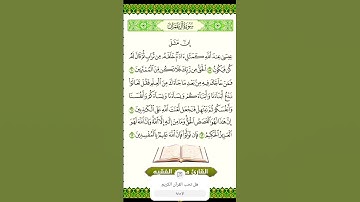 سورة آل عمران
إن مثل
عيسى عند الله كمثل ءادم خلقه من تراب ثم قال له
كن فيكون الحق من ربك فلا تكن من الممترين
فمن حاجك فيه من بعد ما جاءك من العلم فقل تعالوا
ندع أبناءنا وأبناءكم ونساءنا ونساءكم وأنفسنا
وأنفسكم ثم نبتهل فنجعل لعنت الله على الكذبين
إن هذا لهو القصص الحق وما من إله إلا الله وإن الله لهو
العزيز الحكيم فإن تولوا فإن الله عليم بالمفسدين
القارئ الفقيه
هل تحب القرآن الكريم